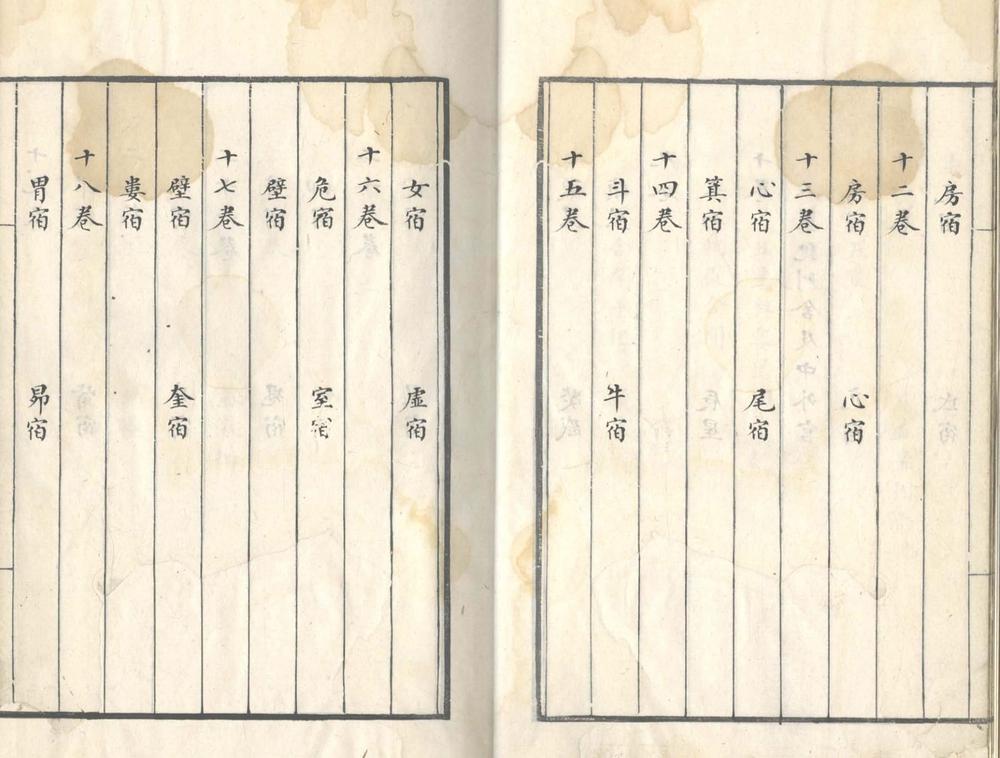 房宿
十二卷
房宿 心宿
十三卷
心宿 尾宿
箕宿
十四卷
斗宿 牛宿
十五卷
女宿 虛宿
十六卷
危宿 室宿
壁宿
十七卷
壁宿 奎宿
婁宿
十八卷
胃宿 昴宿